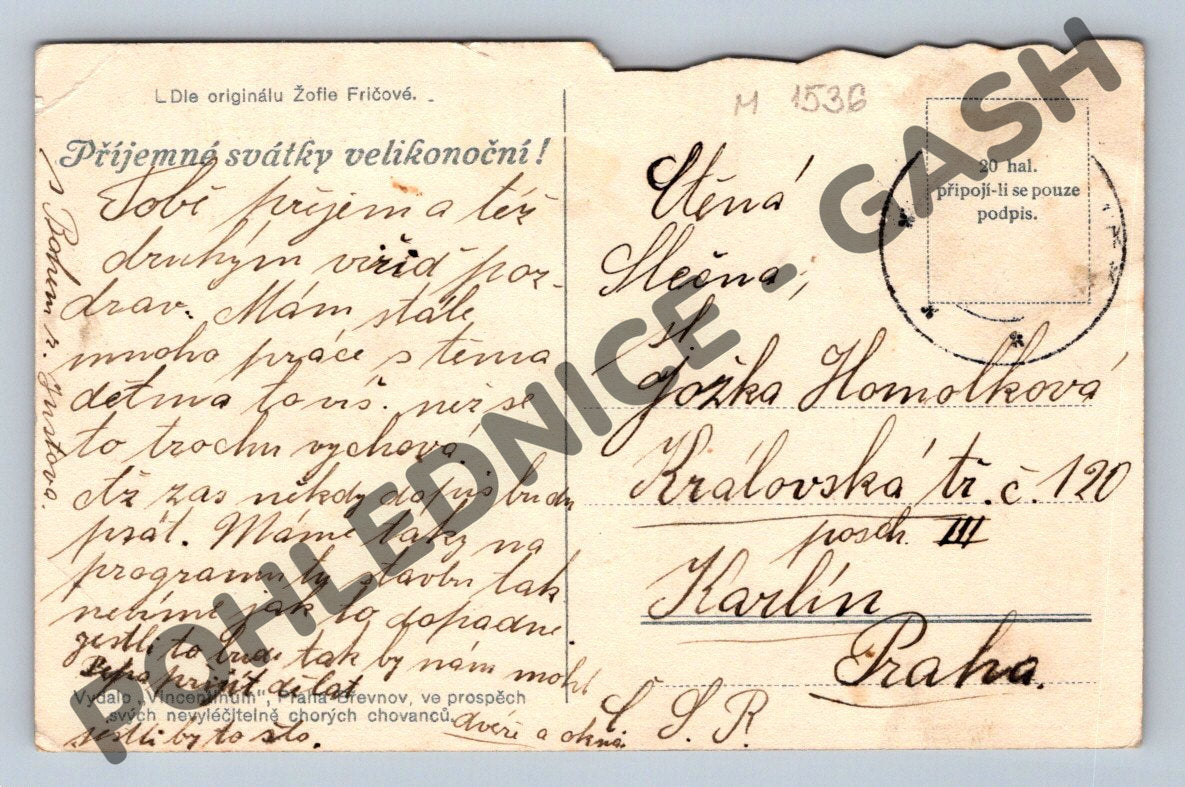 L Dle originálu Žofie Fričové.
M 1536
Příjemné svátky velikonoční!
20 hal.
připojí-li se pouze
podpis.
Tobě přejem a též
druhým poz-
drav. Mám stále
mnoho práce s těma
dětma to víš. než se
to trochu vychová.
Až zas někdy dopis budu
psát. Máme taky na
programu tu stavbu tak
nevíme jak to dopadne.
jestli to bude tak by nám mohl
Pepa přijít dělat
dvéře a okna
jestli by to šlo.
S Bohem
Vydalo „Vincentinum“, Praha-Břevnov, ve prospěch
svých nevyléčitelně chorých chovanců.
Ctěná
Slečna,
sl.
Jožka Homolková
Královská tř. č. 120
posch. III
Karlín
Praha.
Č. S. R.
POHLEDNICE - GASH